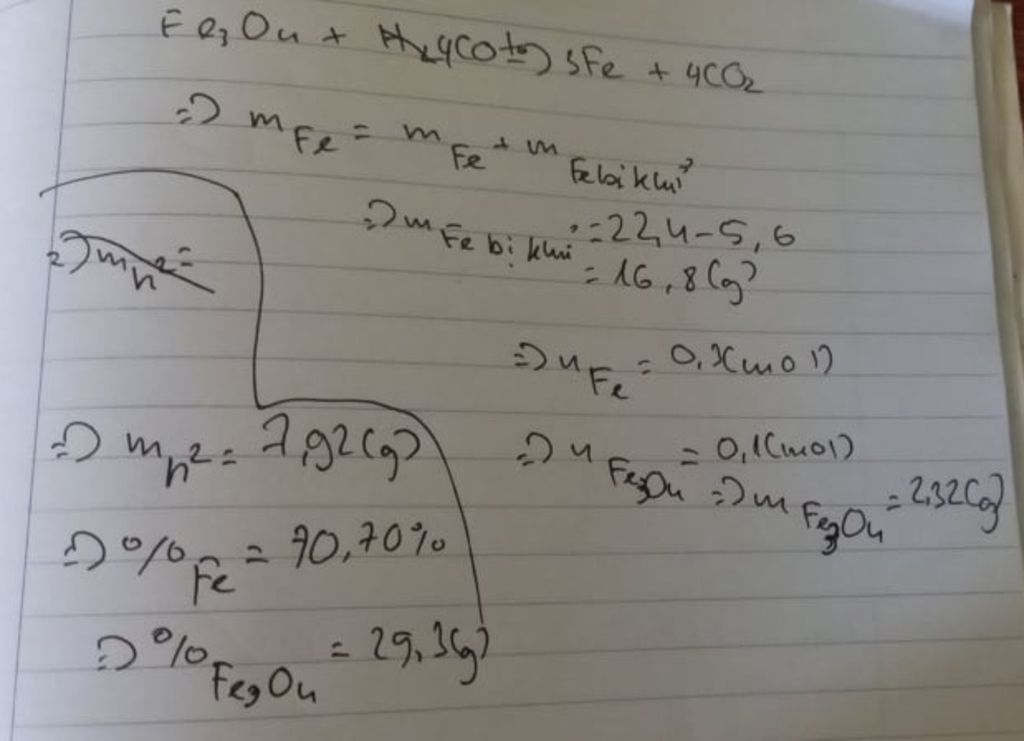 Fe3O4 + 4CO t° → 3Fe + 4CO2
=> m Fe = m Fe + m Fe bị khử
=> m Fe bị khử = 22,4 - 5,6
= 16,8 (g)
=> n Fe = 0,3 (mol)
=> n Fe3O4 = 0,1 (mol)
=> m Fe3O4 = 2,32 (g)
=> m h² = 7,92 (g)
=> % Fe = 70,70%
=> % Fe3O4 = 29,3 (g)